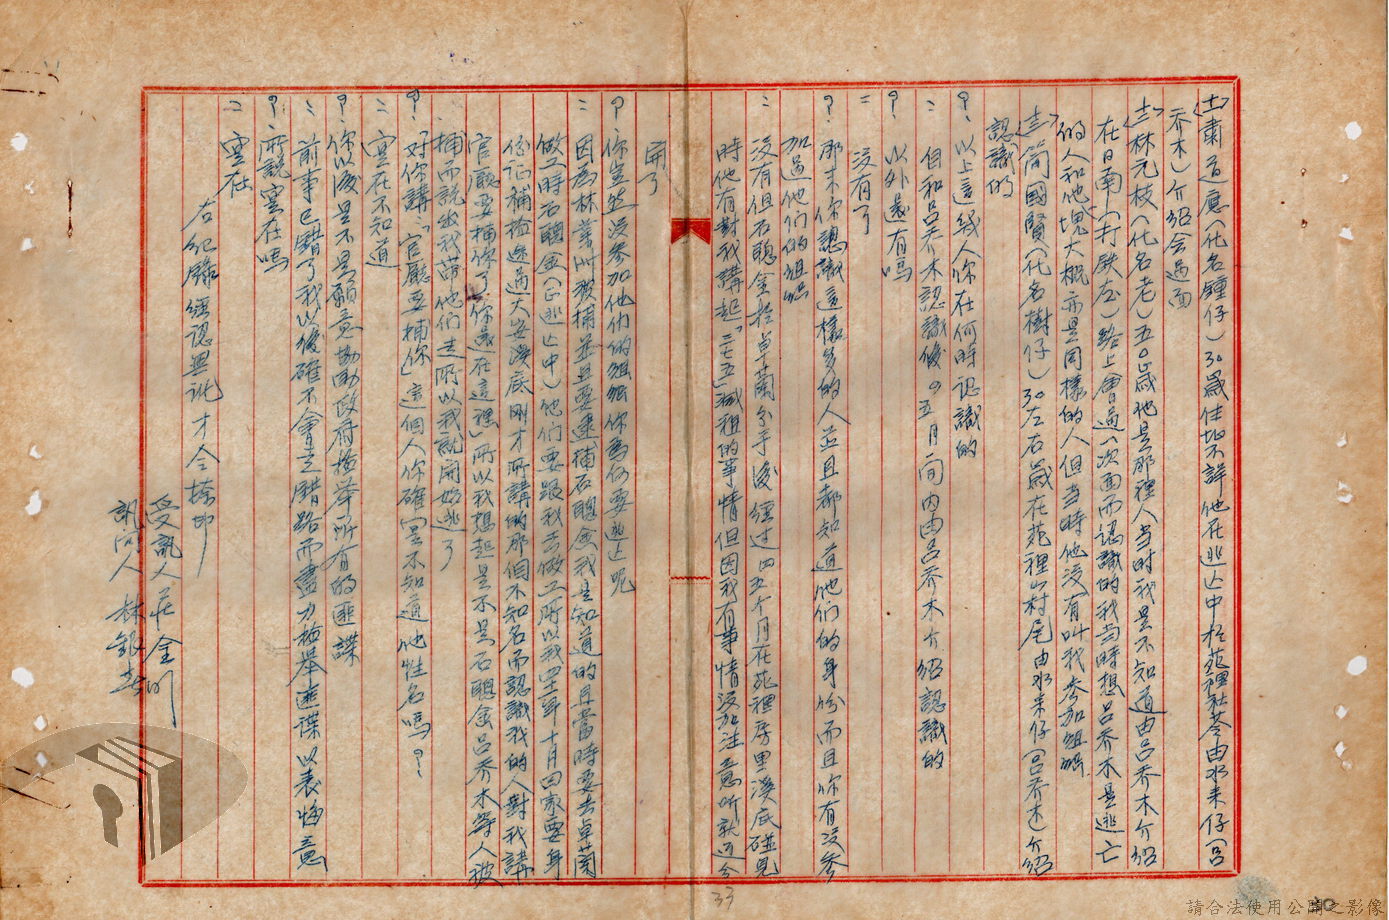 (十一)肅道應(化名鐘仔)30歲住址不詳他在逃亡中於苑裡社苓由水来仔(呂
乔木)介紹会過面
(十二)林元枝(化名老)五0歲他是那裡人当时我是不知道由呂乔木介紹
在日南(打鉄店)路上會過一次面而認識的我当時想呂乔木是逃亡
的人和他塊大概亦是同樣的人但当時他沒有叫我参加組織
(十三)簡國賢(化名樹仔)30左右歲在苑裡山村尾由水来仔(呂乔木)介紹
認識的
?以上這幾人你在何時認識的
:自和呂乔木認識後四五月间内由呂乔木介紹認識的
?以外還有嗎
:沒有了
?那末你認識這樣多的人並且都知道他們的身份而且你有沒参
加過他們的組織
:沒有但石聰金於卓蘭分手後經过四五个月在苑裡房里溪底碰見
時他有對我講起「三七五」減租的事情但因我有事情沒加注意听就沂今
開了
?你豈然沒参加他們的組織你為何要逃亡呢
:因為林葉洲被捕並且要逮捕石聰金我是知道的且當時要去卓蘭
做工時石聰金(正逃亡中)他們要跟我去做工所以我四十年十月回家要身
份证補檢迯過大安溪底刚才所講的那個不知名而認識我的人對我講
官廳要捕你了「你還在這裡」所以我想起是不是石聰金呂乔木等人被
捕而說出我帶他們走所以我就開始逃了
?好你講「官廳要捕你」這個人你確实不知道他性名嗎?
:实在不知道
?你以後是不是願意勸勵政府檢举所有的匪諜
:前事已錯了我以後確不會走錯路而盡力檢舉匪諜以表悔意
?所說实在嗎
:实在
右紀錄經認無訛才令捺印
受訊人 莊金
訊问人 林銀
33
請合法使用公開之影像